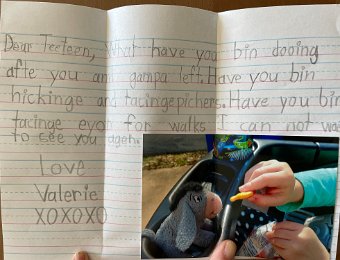 Dear Teeteen, What have you bin dooing
afte you and gampa left. Have you bin
hickinge and tacingepichers. Have you bin
tacinge eyor for walks I can not wa
to see you agen.
Love
Valerie
XOXOXO